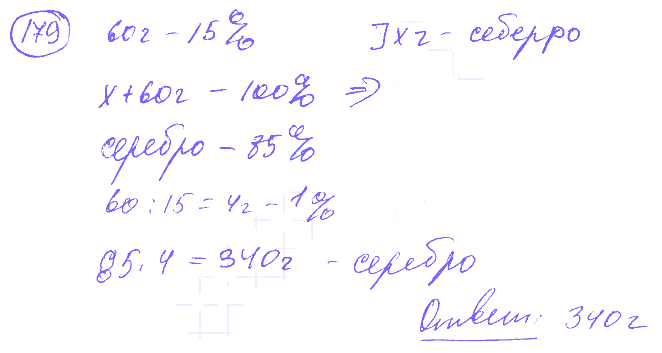 179 60г - 15% ]xг - себерро
x+60г - 100% =>
серебро - 85%
60 : 15 = 4г - 1%
85 . 4 = 340г - серебро
Ответ: 340г